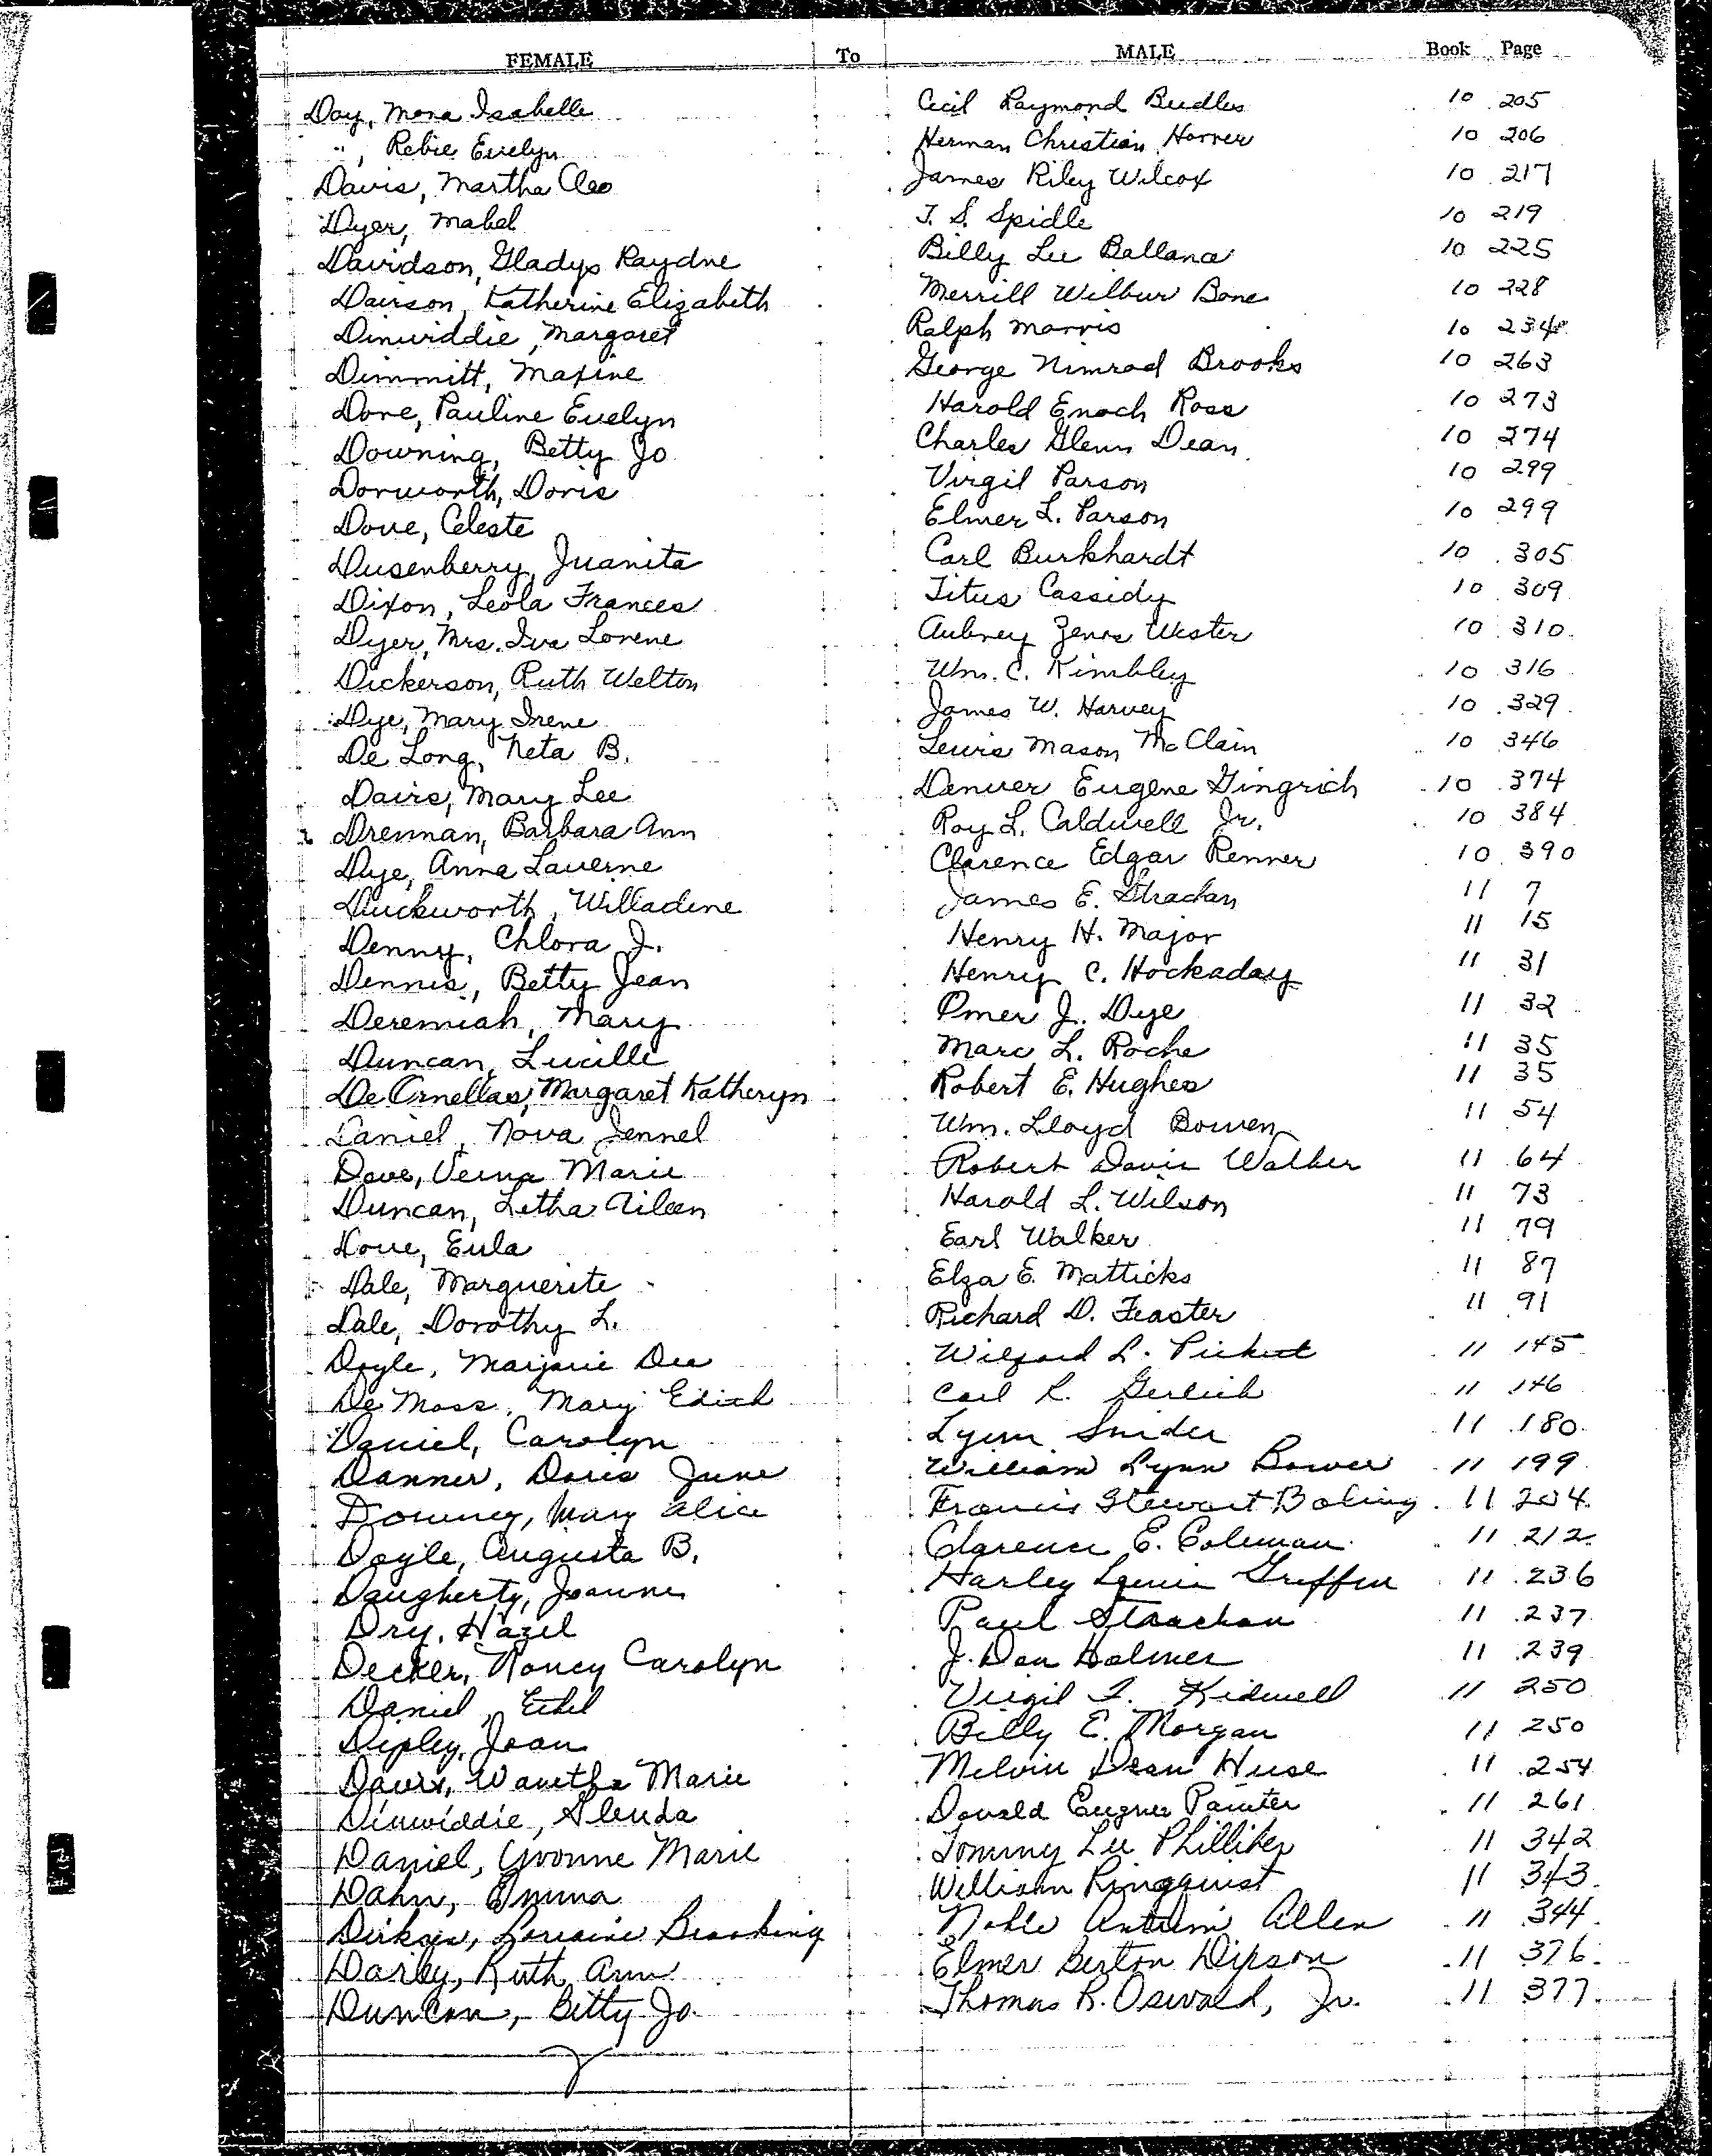 FEMALE To MALE Book Page
Day, Mona Isabelle Cecil Raymond Beedles 10 205
", Rebie Evelyn Herman Christian Horner 10 206
Davis, Martha Cleo James Riley Wilcox 10 217
Dyer, Mabel T. S. Spidle 10 219
Davidson, Gladys Raydne Billy Lee Ballance 10 225
Dawson, Katherine Elizabeth Merrill Wilbur Bone 10 228
Dinwiddie, Margaret Ralph Morris 10 234
Dimmitt, Maxine George Nimrod Brooks 10 263
Dove, Pauline Evelyn Harold Enoch Ross 10 273
Downing, Betty Jo Charles Glenn Dean 10 274
Dorworth, Doris Virgil Parson 10 299
Dove, Celeste Elmer L. Parson 10 299
Dusenberry, Juanita Carl Burkhardt 10 305
Dixon, Leola Frances Titus Cassidy 10 309
Dyer, Mrs. Iva Lorene Aubrey Zenos Wester 10 310
Dickerson, Ruth Welton Wm. C. Kimbley 10 316
Dye, Mary Irene James W. Harvey 10 329
De Long, Neta B. Lewis Mason McClain 10 346
Davis, Mary Lee Denver Eugene Gingrich 10 374
Drennan, Barbara Ann Roy L. Caldwell Jr. 10 384
Dye, Anna Laverne Clarence Edgar Renner 10 390
Duckworth, Willadene James E. Strachan 11 7
Denny, Chlora J. Henry H. Major 11 15
Dennis, Betty Jean Henry C. Hockaday 11 31
Deremiah, Mary Omer J. Dye 11 32
Duncan, Lucille Marc L. Roche 11 35
De Ornellas, Margaret Katheryn Robert E. Hughes 11 35
Daniel, Nova Jennel Wm. Lloyd Bowen 11 54
Dove, Verna Marie Robert Davis Walker 11 64
Duncan, Letha Aileen Harold L. Wilson 11 73
Dove, Eula Earl Walker 11 79
Dale, Marguerite Elza E. Matticks 11 87
Dale, Dorothy L. Richard D. Feaster 11 91
Doyle, Marjorie Dee Wilford L. Pickett 11 145
De Moss, Mary Edith Carl R. Gerlich 11 146
Daniel, Carolyn Lynn Snider 11 180
Danner, Doris June William Lynn Bower 11 199
Downey, Mary Alice Francis Stewart Boling 11 204
Doyle, Augusta B. Clarence E. Coleman 11 212
Daugherty, Joanne Harley Lewis Griffin 11 236
Dry, Hazel Paul Strachan 11 237
Decker, Nancy Carolyn J. Don Holmes 11 239
Daniel, Ethel Virgil F. Kidwell 11 250
Dipley, Joan Billy E. Morgan 11 250
Davis, Wanetha Marie Melvin Dean Huse 11 254
Dinwiddie, Glenda Donald Eugene Painter 11 261
Daniel, Yvonne Marie Tommy Lee Philliber 11 342
Dahn, Emma William Ringquist 11 343
Dirksen, Lorraine Brooking Noble Antrim Allen 11 344
Darby, Ruth Ann Elmer Berton Dipson 11 376
Duncan, Betty Jo Thomas R. Oswald, Jr. 11 377